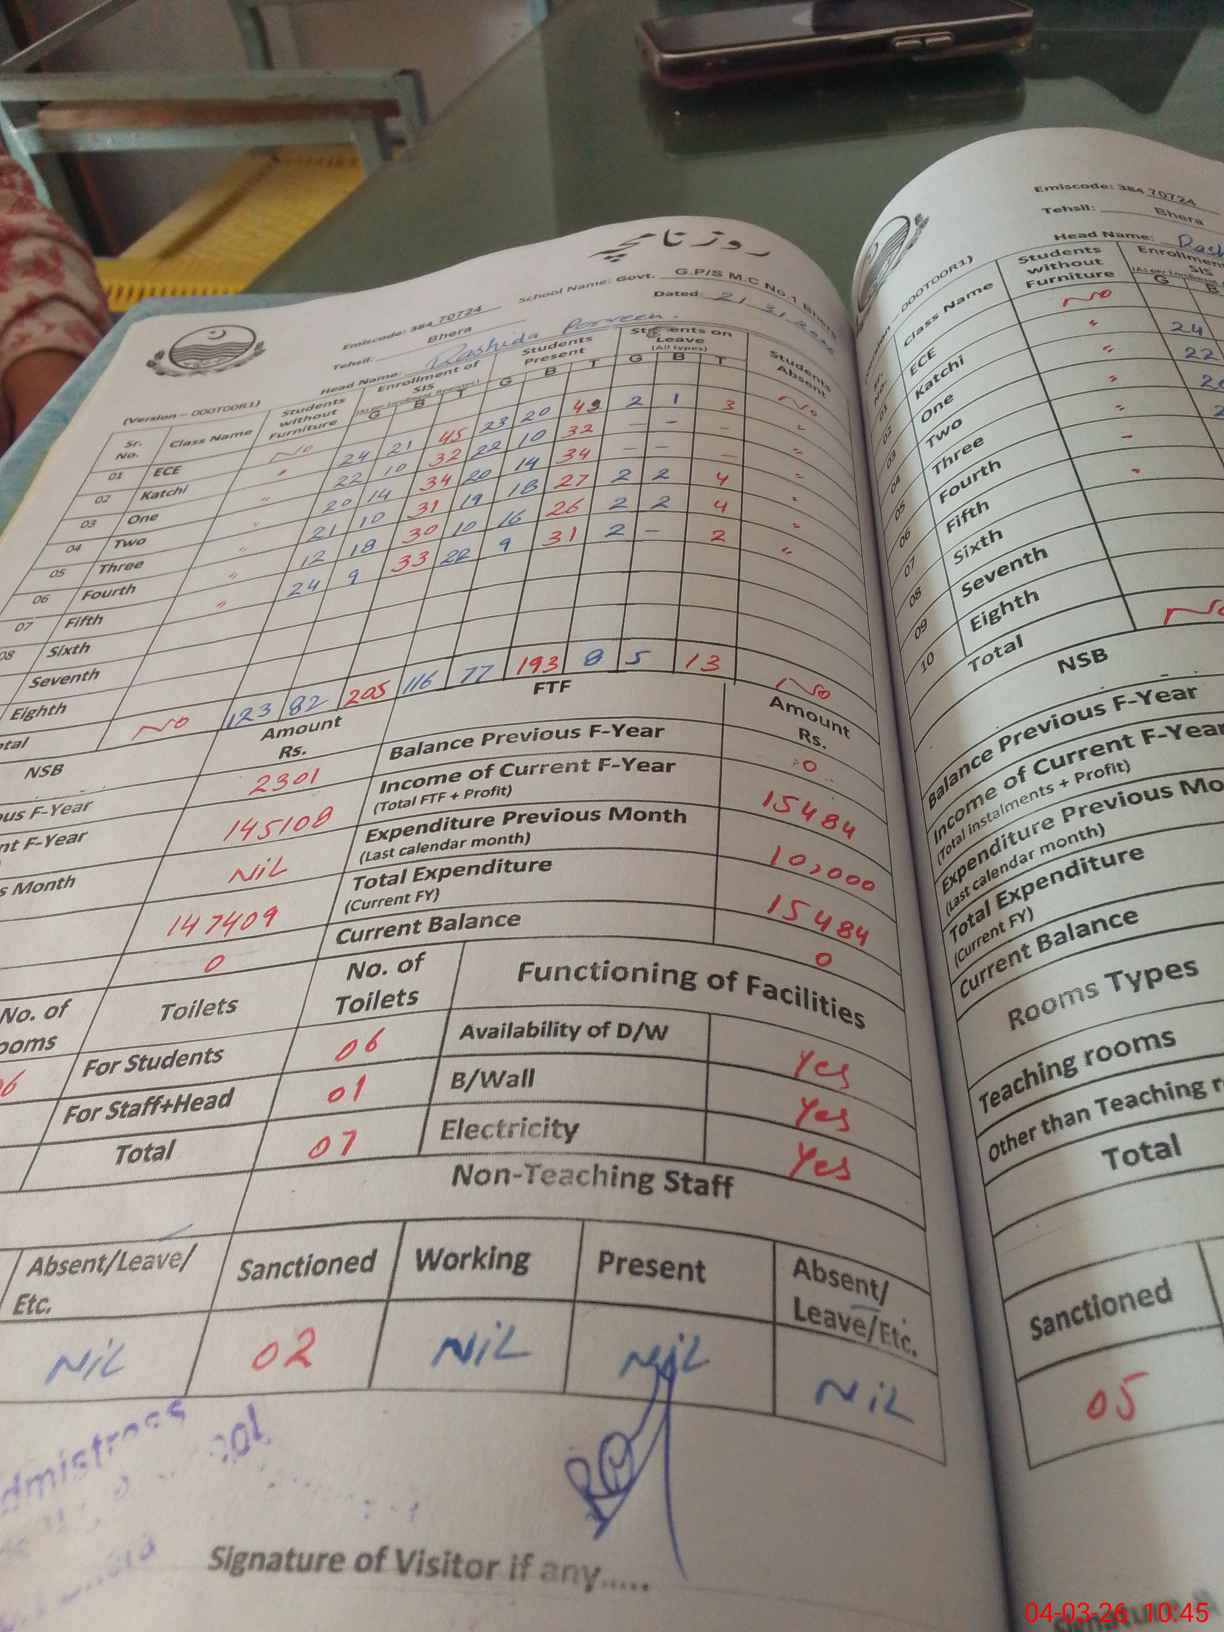 روزنامچہ
Emiscode: 384 70724 School Name: Govt. G.P/S M.C No.1 Bhera
Tehsil: Bhera Dated
Head Name: Rashida Parveen.
(Version – 000T00R1)
Sr. No. Class Name Students without Furniture Enrollment of SIS Students Present Students on Leave (All types) Students Absent
G B T G B T G B T
01 ECE No 24 21 45 23 20 43 2 1 3 No
02 Katchi " 22 10 32 22 10 32 - - - "
03 One " 20 14 34 20 14 34 - - - "
04 Two " 21 10 31 19 27 2 2 4 "
05 Three " 12 18 30 10 16 26 2 2 4 "
06 Fourth " 24 9 33 22 9 31 2 - 2 "
07 Fifth
08 Sixth
Seventh
Eighth
No 123 82 205 116 77 193 8 5 13 No
NSB Amount Rs. FTF Amount Rs.
F-Year 2301 Balance Previous F-Year 0
F-Year 145108 Income of Current F-Year (Total FTF + Profit) 15484
Month NiL Expenditure Previous Month (Last calendar month) 10,000
147409 Total Expenditure (Current FY) 15484
0 Current Balance 0
No. of Toilets No. of Toilets Functioning of Facilities
For Students 06 Availability of D/W Yes
For Staff+Head 01 B/Wall Yes
Total 07 Electricity Yes
Non-Teaching Staff
Absent/Leave/Etc. Sanctioned Working Present Absent/Leave/Etc.
NiL 02 NiL NiL NiL
Signature of Visitor if any.....
Emiscode: 384 70724
Tehsil: Bhera
Head Name:
000T00R1)
Class Name Students without Furniture SIS
G B
01 ECE No 24
02 Katchi " 22
03 One "
04 Two "
05 Three "
06 Fourth
07 Fifth
08 Sixth
09 Seventh
10 Eighth
Total No
NSB
Balance Previous F-Year
Income of Current F-Year
(Total instalments + Profit)
Expenditure Previous
(Last calendar month)
Total Expenditure
(Current FY)
Current Balance
Rooms Types
Teaching rooms
Other than Teaching
Total
Sanctioned
05
04-03-26 10:45